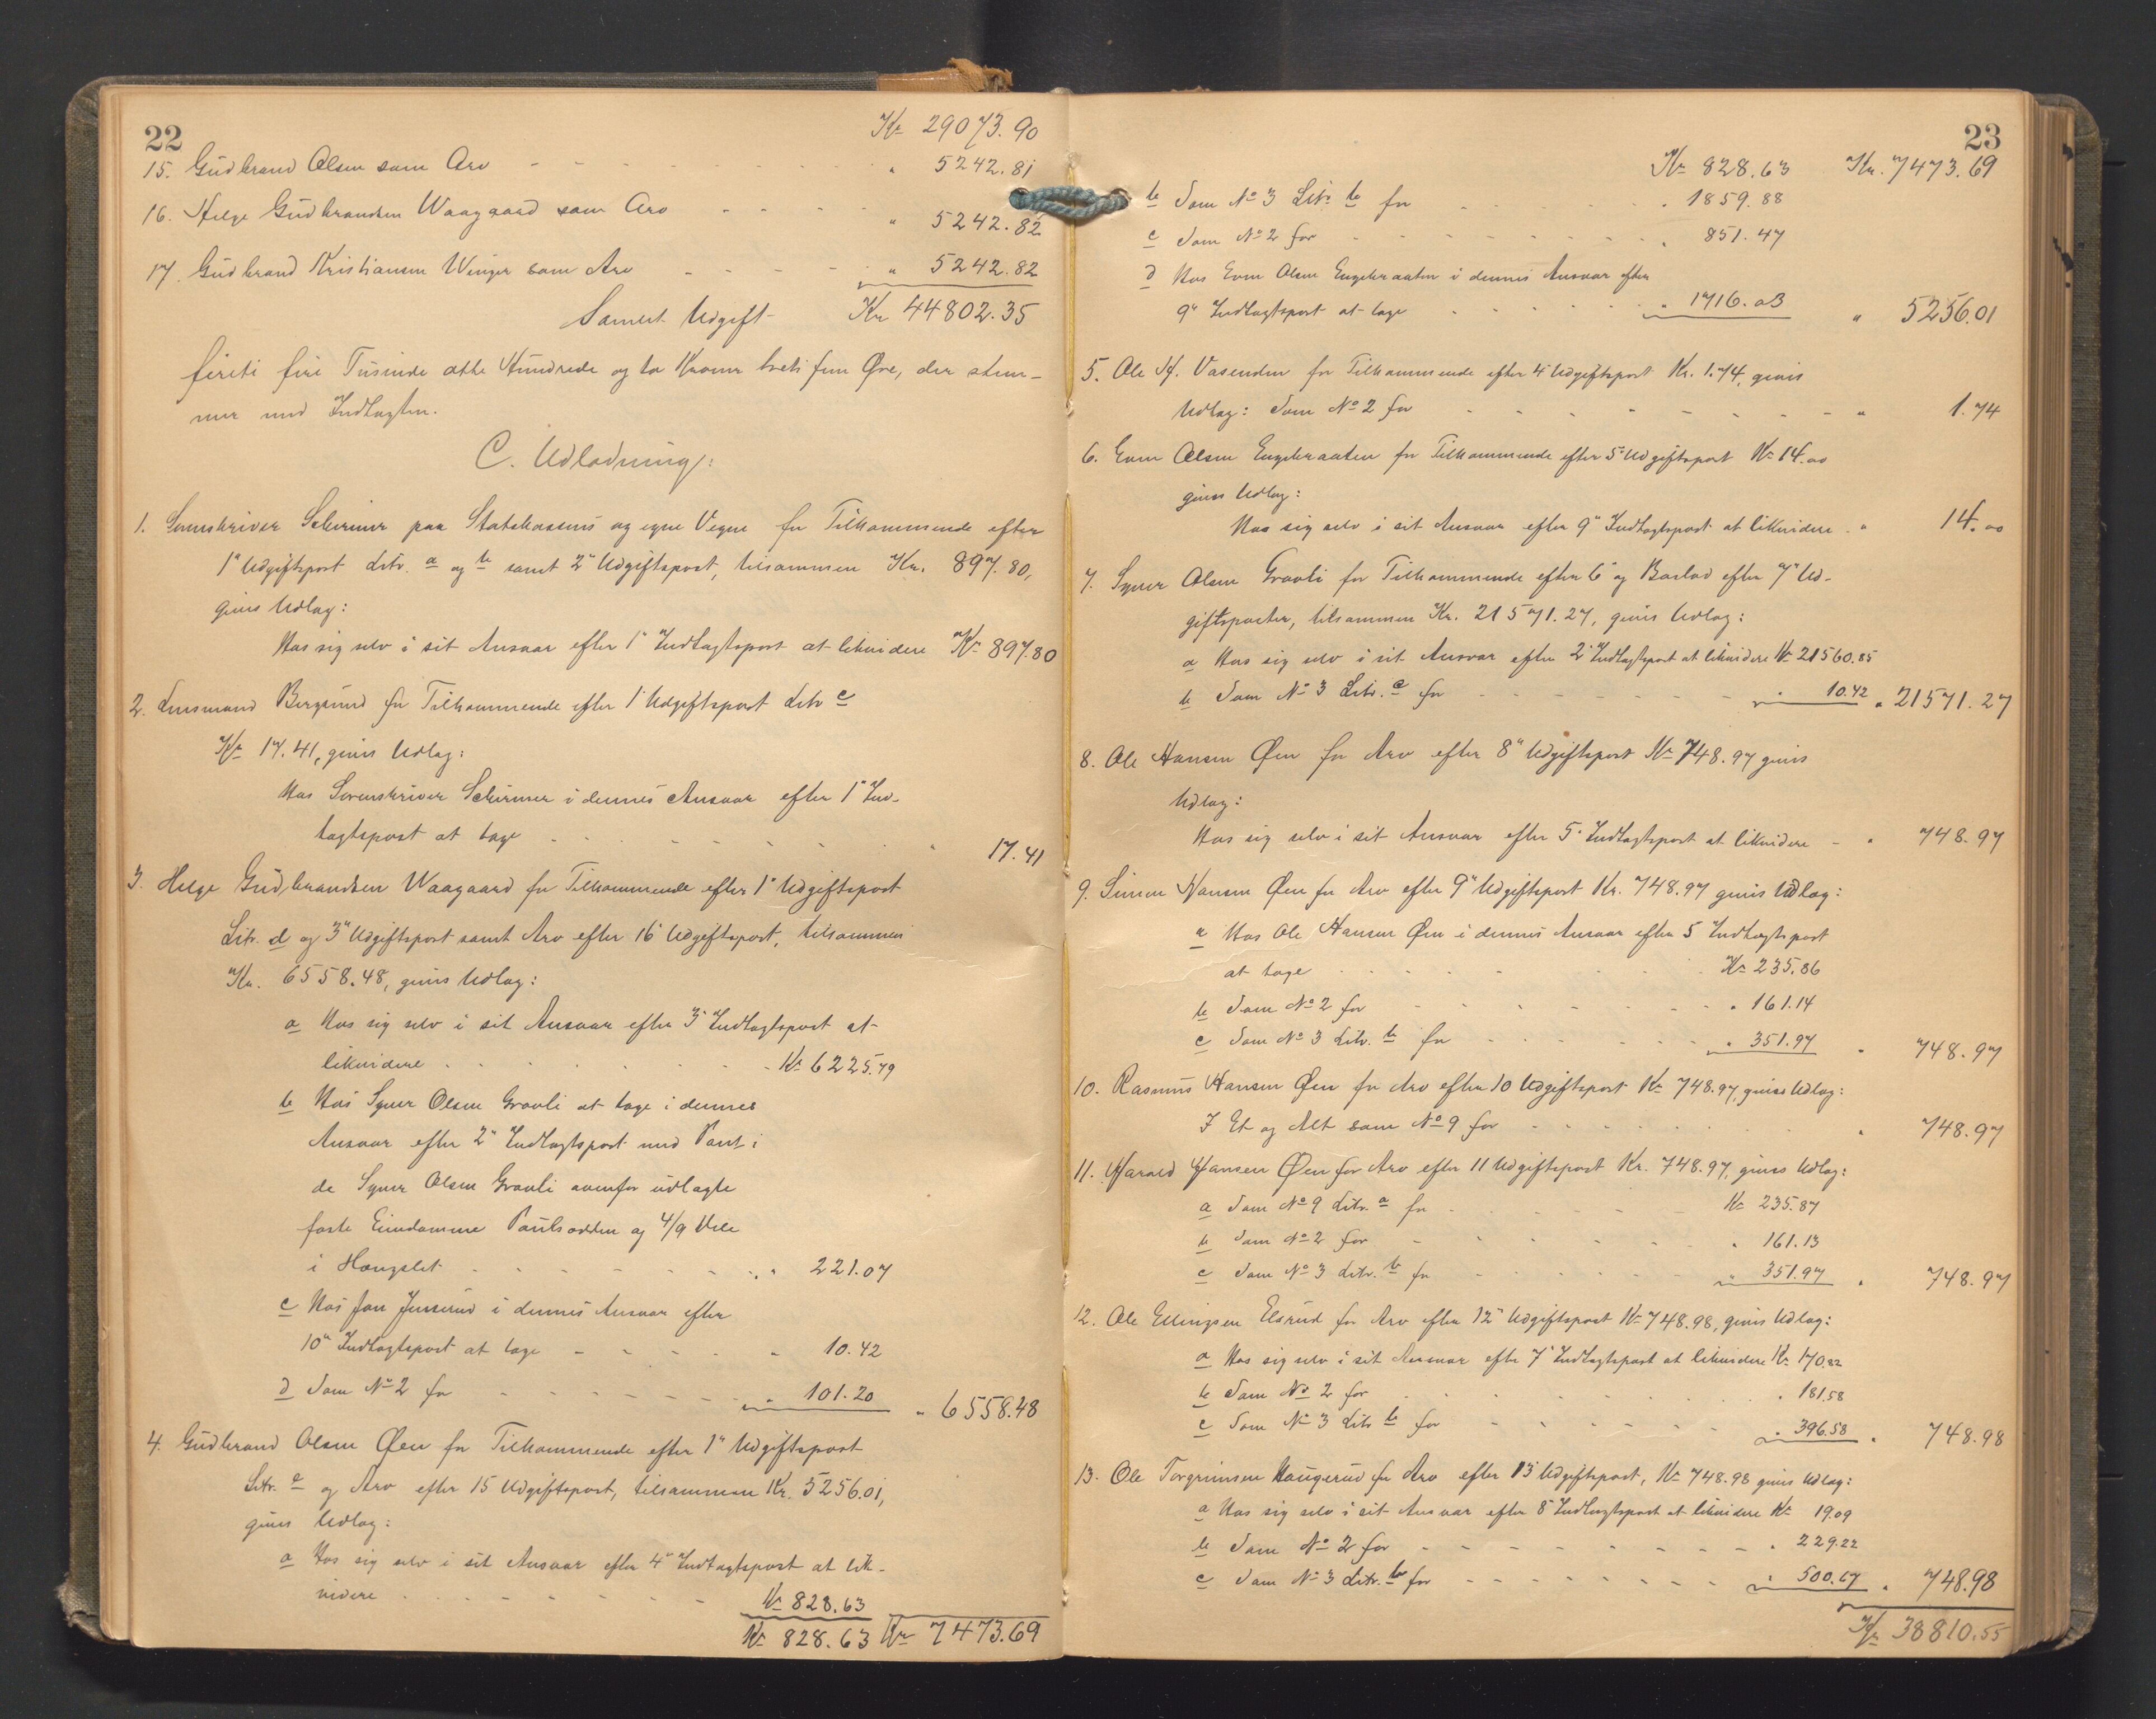 22
Kr 29073.90
15. Gudbrand Olsen som Arv - - - - " 5242.81
16. Helge Gudbrandsen Waagaard som Arv - - - - " 5242.82
17. Gudbrand Kristiansen Winger som Arv - - - - " 5242.82
Samlet Udgift Kr 44802.35
firti fire Tusinde otte Hundrede og to Kroner treti fem Øre, der stem-
mer med Indtægten.
C. Udlodning:
1. Sorenskriver Schirmer paa Statskassens og egne Vegne for Tilkommende efter
1ste Udgiftspost Litr. a og b samt 2" Udgiftspost, tilsammen Kr. 897.80,
gives Udlæg:
Hos sig selv i sit Ansvar efter 1" Indtægtspost at likvidere Kr 897.80
2. Lensmand Bergsund for Tilkommende efter 1" Udgiftspost Litr c
Kr 17.41, gives Udlæg:
Hos Sorenskriver Schirmer i dennes Ansvar efter 1" Ind-
tægtspost at tage - - - - " 17.41
3. Helge Gudbrandsen Waagaard for Tilkommende efter 1" Udgiftspost
Litr. d og 3" Udgiftspost samt Arv efter 16" Udgiftspost, tilsammen
Kr. 6558.48, gives Udlæg:
a Hos sig selv i sit Ansvar efter 3" Indtægtspost at
likvidere - - - - Kr 6225.79
b Hos Syver Olsen Gravli at tage i dennes
Ansvar efter 2" Indtægtspost med Pant i
de Syver Olsen Gravli ovenfor udlagte
faste Eiendomme Paulsodden og 4/9 Dele
i Hougslet - - - - " 221.07
c Hos Jon Jensrud i dennes Ansvar efter
10" Indtægtspost at tage - - - - " 10.42
d Som No 2 for - - - - " 101.20 " 6558.48
4. Gudbrand Olsen Øen for Tilkommende efter 1" Udgiftspost
Litr. e og Arv efter 15 Udgiftspost, tilsammen Kr. 5256.01,
gives Udlæg:
a Hos sig selv i sit Ansvar efter 4" Indtægtspost at lik-
videre - - - - Kr 828.63
Kr 828.63 Kr 7473.69
23
Kr 828.63 Kr. 7473.69
b Som No 3 Litr. b for - - - - " 1859.88
c Som No 2 for - - - - " 851.47
d Hos Even Olsen Engebraaten i dennes Ansvar efter
9" Indtægtspost at tage - - - - " 1716.03 " 5256.01
5. Ole H. Vasenden for Tilkommende efter 4" Udgiftspost Kr. 1.74, gives
Udlæg: Som No 2 for - - - - " 1.74
6. Even Olsen Engebraaten for Tilkommende efter 5" Udgiftspost Kr 14.00
gives Udlæg:
Hos sig selv i sit Ansvar efter 9" Indtægtspost at likvidere - " 14.00
7. Syver Olsen Gravli for Tilkommende efter 6" og Boslod efter 7" Ud-
giftsposter, tilsammen Kr. 21571.27, gives Udlæg:
a Hos sig selv i sit Ansvar efter 2" Indtægtspost at likvidere Kr 21560.85
b Som No 3 Litr. c for - - - - " 10.42 " 21571.27
8. Ole Hansen Øen for Arv efter 8" Udgiftspost Kr 748.97 gives
Udlæg:
Hos sig selv i sit Ansvar efter 5" Indtægtspost at likvidere - " 748.97
9. Simen Hansen Øen for Arv efter 9" Udgiftspost Kr. 748.97 gives Udlæg:
a Hos Ole Hansen Øen i dennes Ansvar efter 5 Indtægtspost
at tage - - - - Kr 235.86
b Som No 2 for - - - - " 161.14
c Som No 3 Litr. b for - - - - " 351.97 " 748.97
10. Rasmus Hansen Øen for Arv efter 10 Udgiftspost Kr 748.97, gives Udlæg:
I Et og Alt som No 9 for - - - - " 748.97
11. Harald Hansen Øen for Arv efter 11 Udgiftspost Kr. 748.97, gives Udlæg:
a Som No 9 Litr. a for - - - - Kr 235.87
b Som No 2 for - - - - " 161.13
c Som No 3 Litr. b for - - - - " 351.97 " 748.97
12. Ole Ellingsen Elsrud for Arv efter 12" Udgiftspost Kr 748.98, gives Udlæg:
a Hos sig selv i sit Ansvar efter 7" Indtægtspost at likvidere Kr 170.82
b Som No 2 for - - - - " 181.58
c Som No 3 Litr b for - - - - " 396.58 " 748.98
13. Ole Torgrimsen Haugerud for Arv efter 13 Udgiftspost, Kr 748.98 gives Udlæg:
a Hos sig selv i sit Ansvar efter 8" Indtægtspost at likvidere Kr 19.09
b Som No 2 for - - - - " 229.22
c Som No 3 Litr. b for - - - - " 500.67 " 748.98
Kr 38810.55